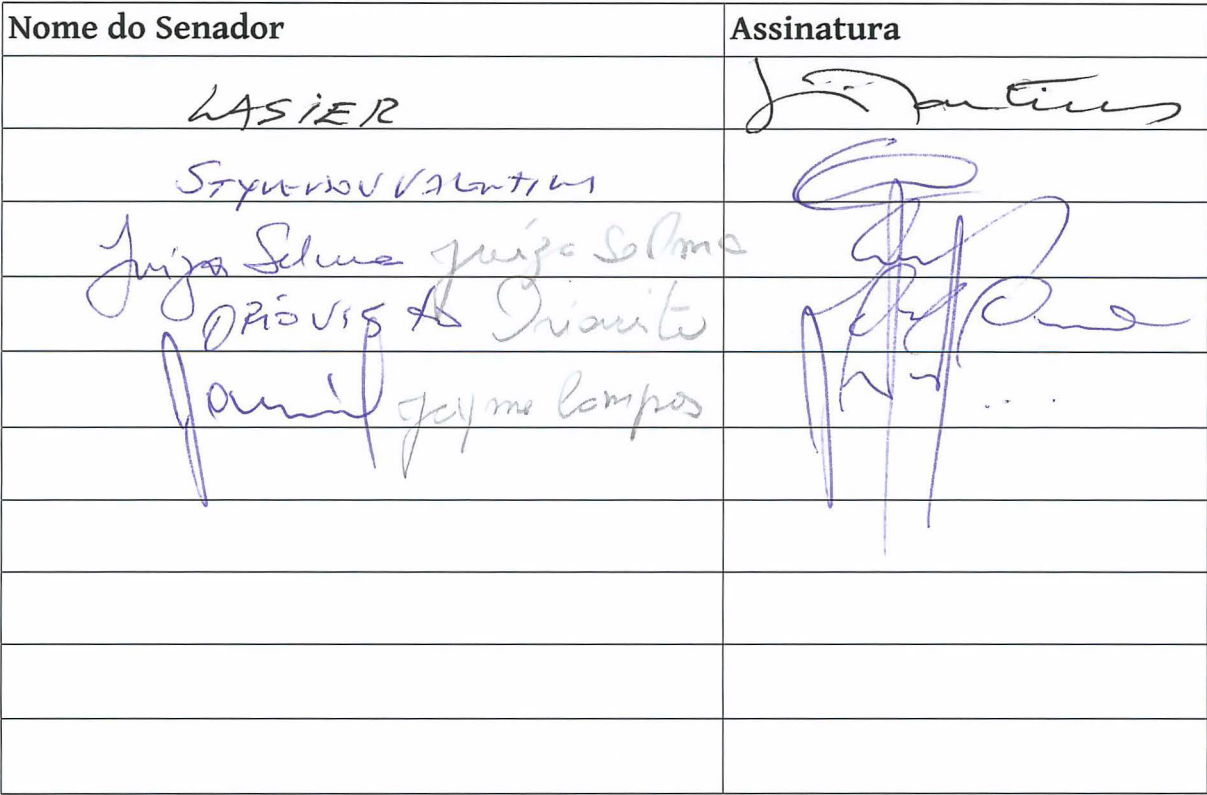 Nome do Senador Assinatura
LASIER
STYVENSON VALENTIM
Juíza Selma Juíza Selma
ORIOVISTO Oriovisto
Jayme Campos